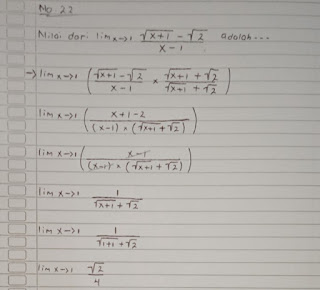 No 22
Nilai dari lim x→1 (√(x+1) - √2)/(x-1) adalah ---
→ lim x→1 ((√(x+1) - √2)/(x-1) × (√(x+1) + √2)/(√(x+1) + √2))
lim x→1 ((x+1-2)/((x-1) × (√(x+1) + √2)))
lim x→1 ((x-1)/((x-1) × (√(x+1) + √2)))
lim x→1 1/(√(x+1) + √2)
lim x→1 1/(√(1+1) + √2)
lim x→1 √2/4